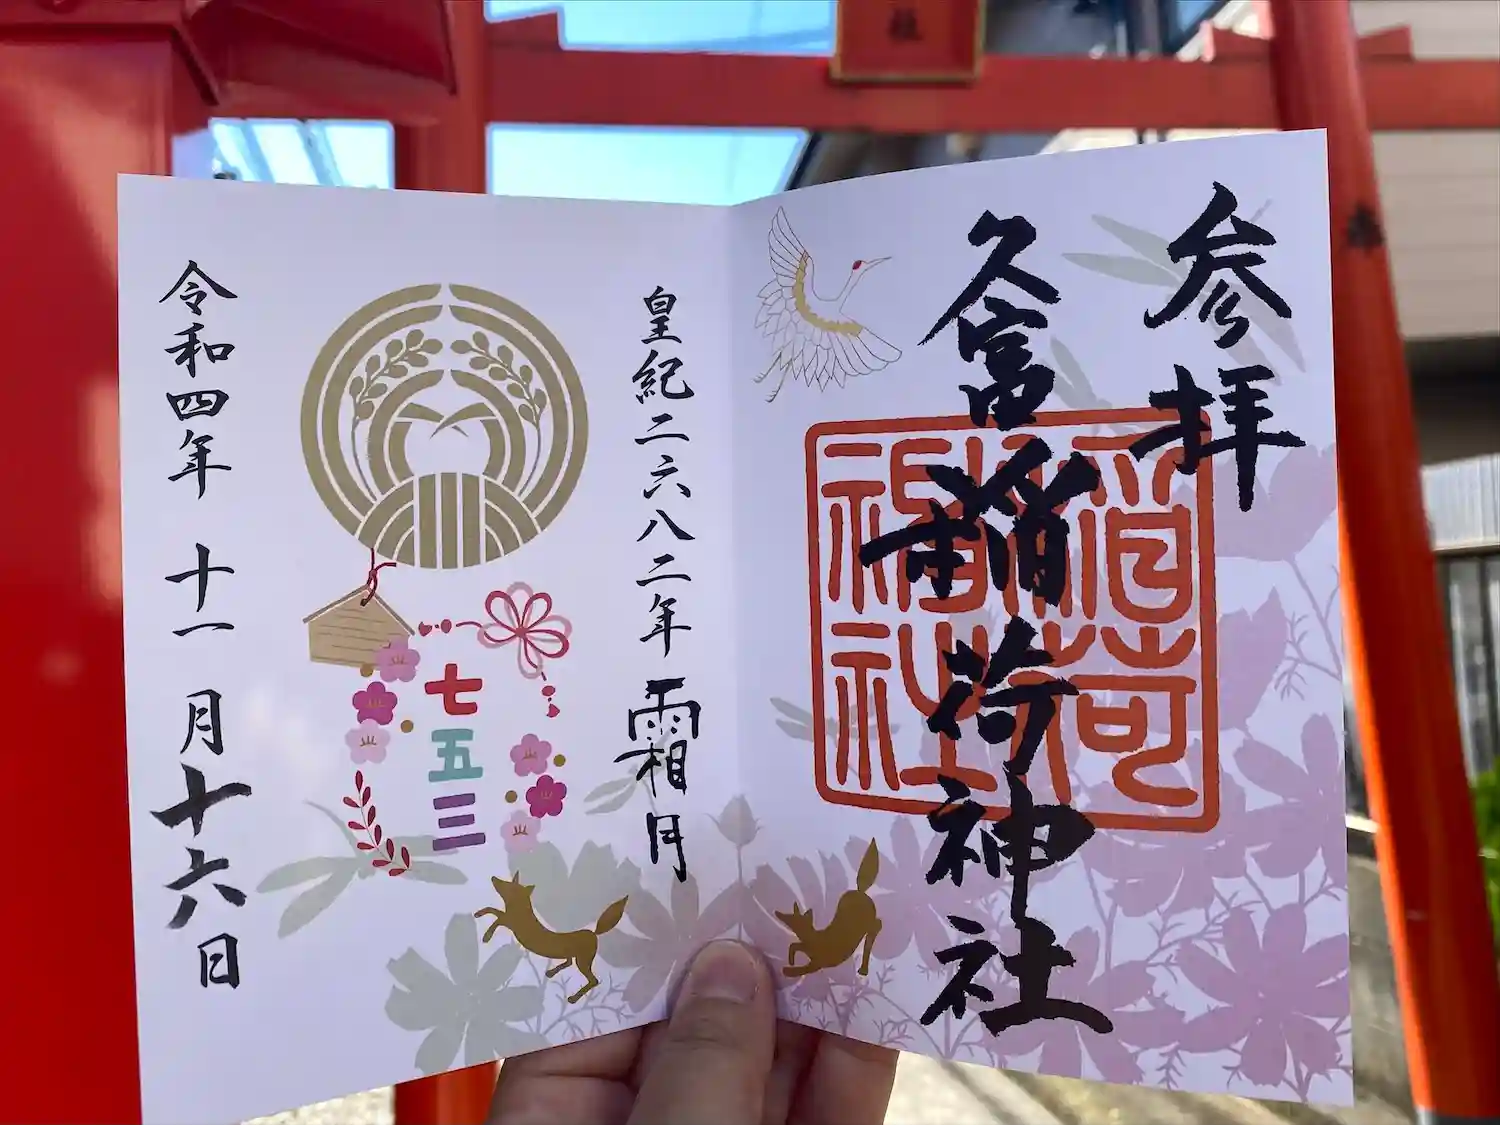 参拝
久富稲荷神社
稲荷
神社
皇紀二六八二年 霜月
七五三
令和四年 十一月十六日